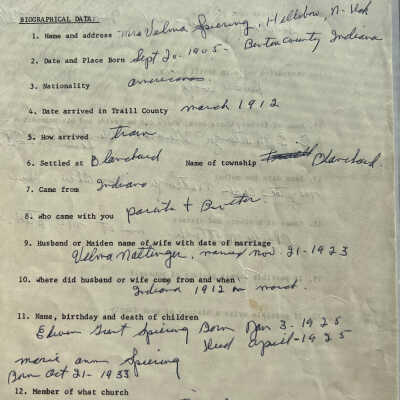 BIOGRAPHICAL DATA:
1. Name and address Mrs Velma Spiering, Hillsboro, N. Dak
2. Date and Place Born Sept 20-1905- Benton County Indiana
3. Nationality american
4. Date arrived in Traill County march 1912
5. How arrived train
6. Settled at Blanchard Name of township Blanchard.
7. Came from Indiana
8. Who came with you parents + Brother
9. Husband or Maiden name of wife with date of marriage
Velma Nov. 21-1923
10. Where did husband or wife come from and when
Indiana 1912 in march.
11. Name, birthday and death of children
Edwin Grant Spiering Born Jan 3-1925
Died April-1925
marie ann Spiering
Born Oct 21-1933
12. Member of what church